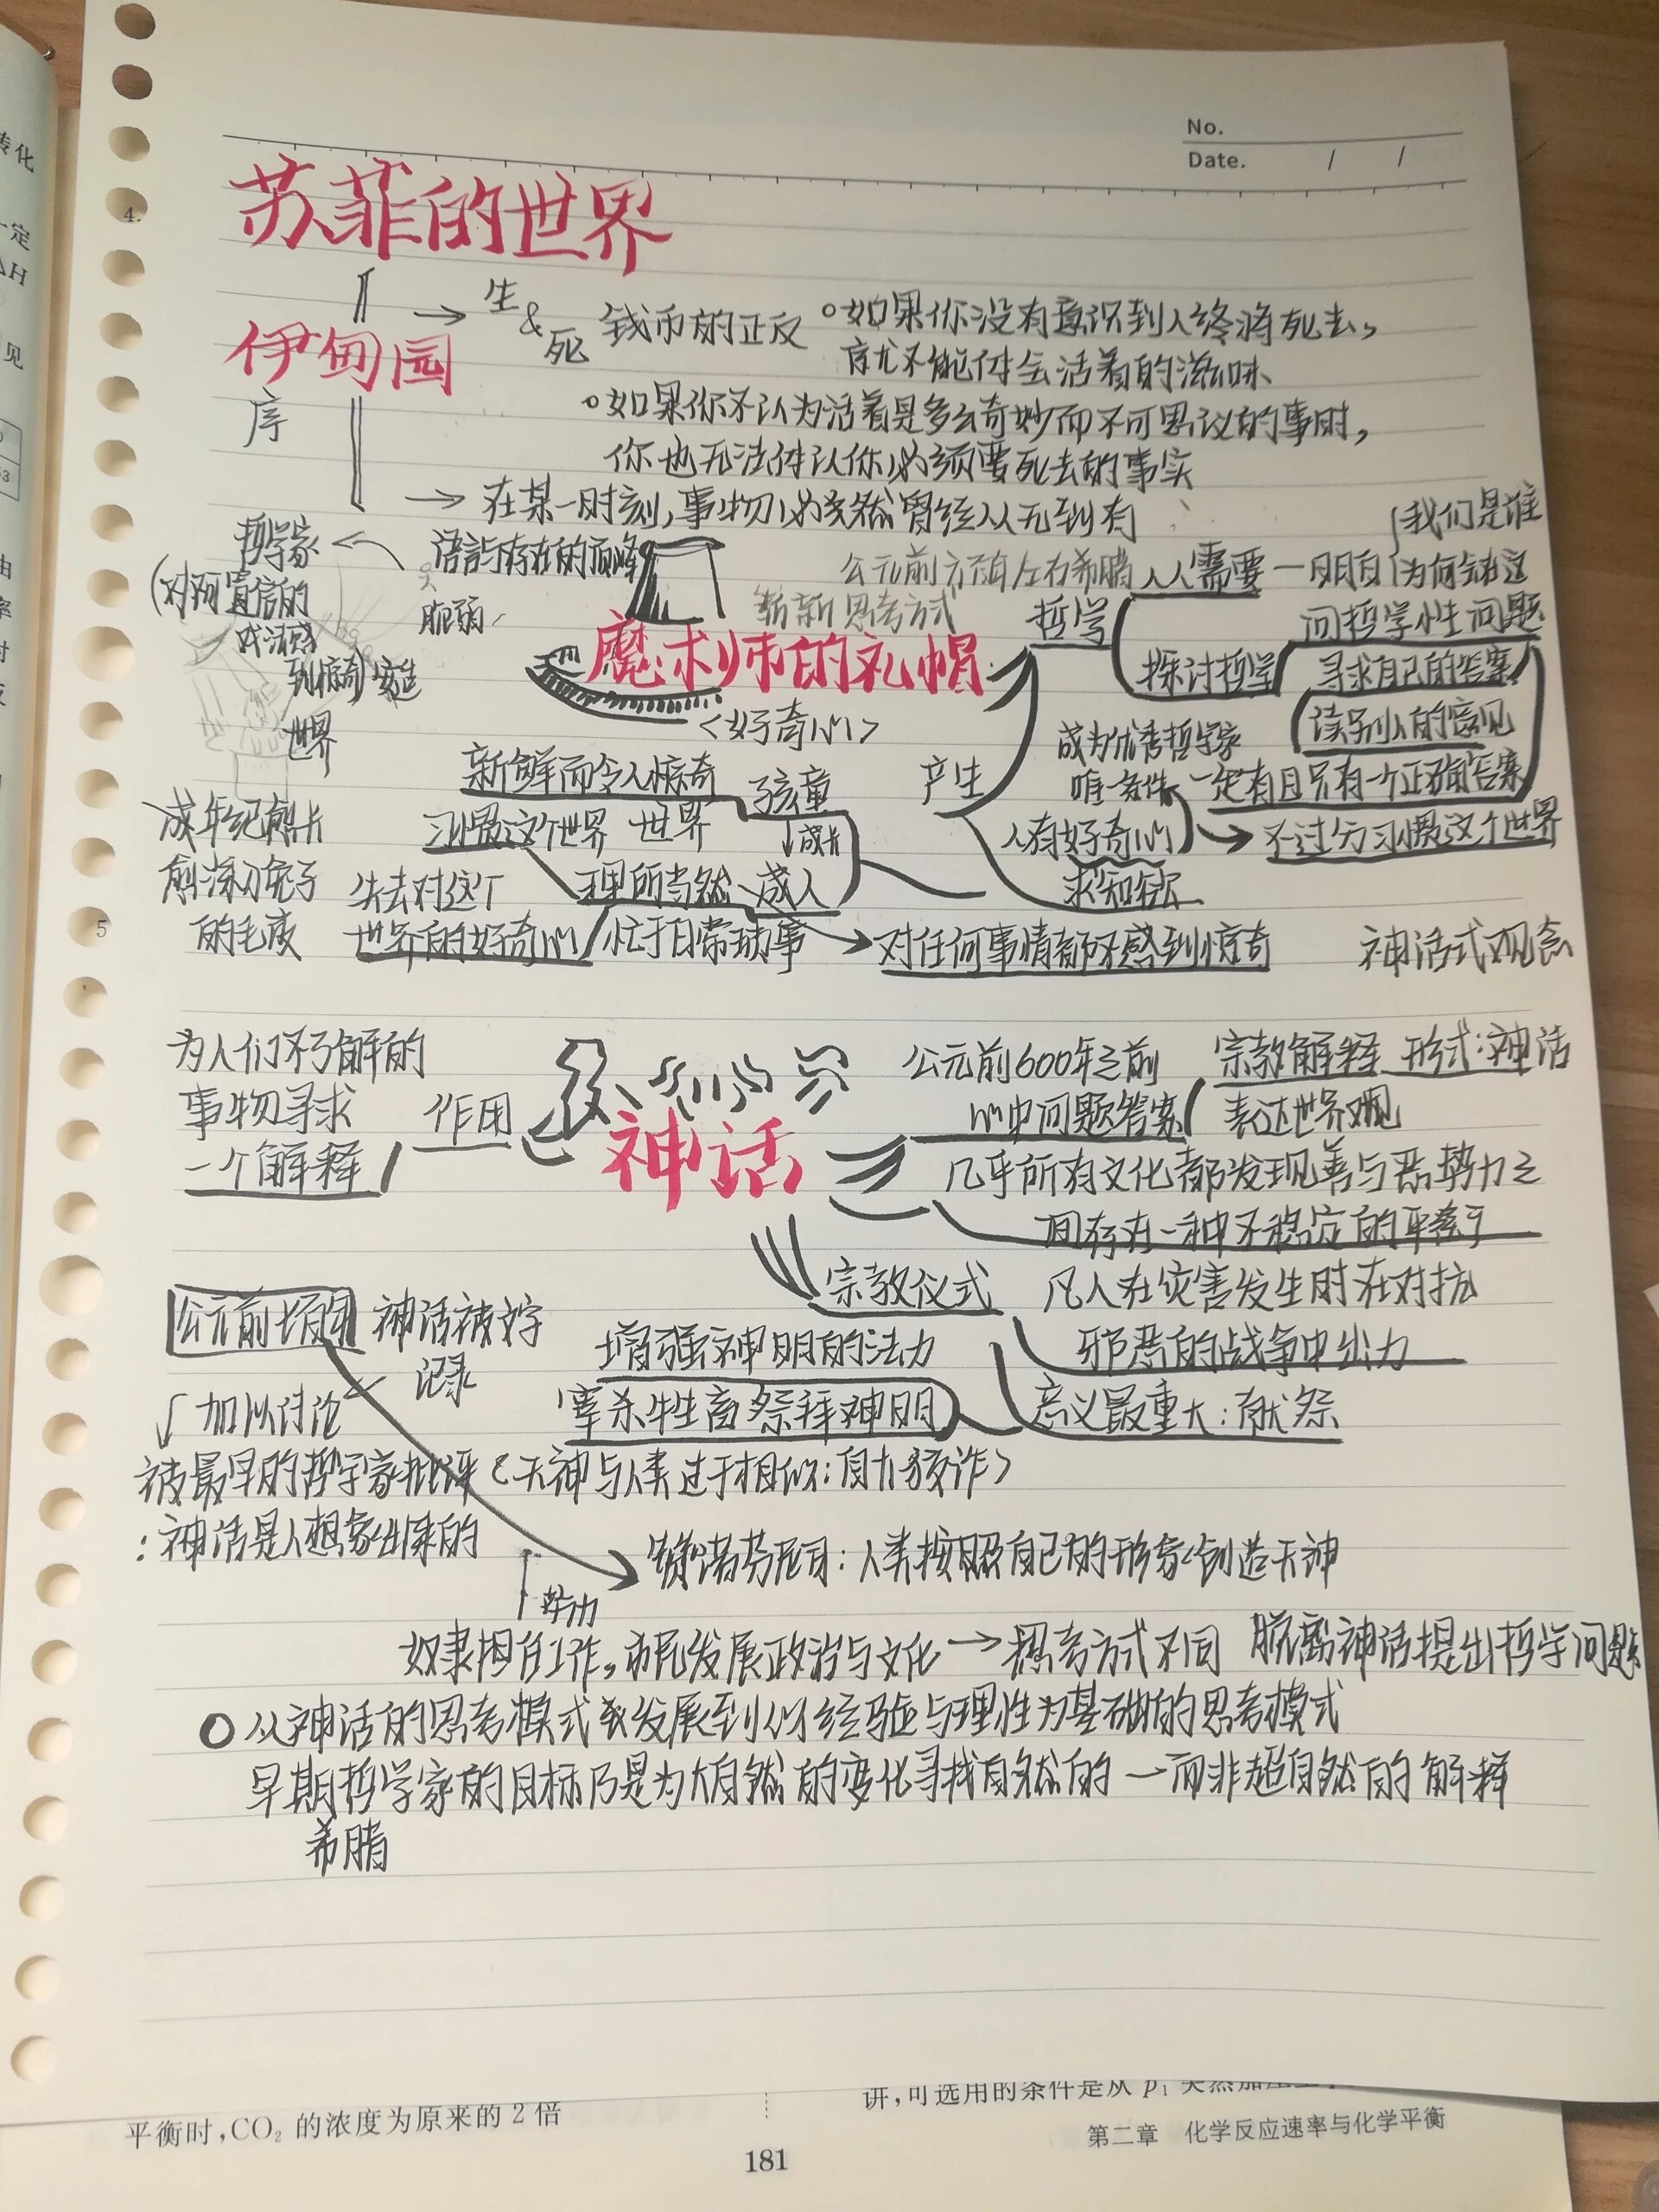 No.
Date. / /
苏菲的世界
伊甸园
序
→ 生&死 钱币的正反
。如果你没有意识到人终将死去,
就不能体会活着的滋味
。如果你不认为活着是多么奇妙而不可思议的事时,
你也无法体认你必须要死去的事实
→ 在某一时刻,事物必然曾经从无到有
哲学家 ← 语言与存在的顶峰
脆弱
世界
魔术师的礼帽
<好奇心>
公元前六百年左右希腊
崭新思考方式
哲学
人人需要一明白
我们是谁
为何会在这
问哲学性问题
探讨哲学
寻求自己的答案
读别人的意见
一定有且只有一个正确答案
成为优秀哲学家
唯一条件
产生
人有好奇心
求知欲
不过分习惯这个世界
新鲜而令人惊奇
孩童
世界
习惯这个世界
↓成长
理所当然
成人
成年纪愈长
愈深入兔子
的毛皮
失去对这个
世界的好奇心
忙于日常琐事
对任何事情都不感到惊奇
神话式观念
神话
作用
为人们不了解的
事物寻求
一个解释
公元前600年之前
心中问题答案
宗教解释 形式:神话
表达世界观
几乎所有文化都发现善与恶势力之
间存在一种不稳定的平衡
宗教仪式
凡人在灾害发生时在对抗
邪恶的战争中出力
意义最重大:献祭
增强神明的法力
宰杀牲畜祭拜神明
公元前七百年
神话被文字
记录
↓加以讨论
被最早的哲学家批评<天神与人类过于相似:自大狡诈>
:神话是人想象出来的
赞诺芬尼司:人类按照自己的形象创造天神
↑
奴隶担任工作,市民发展政治与文化→思考方式不同 脱离神话提出哲学问题
从神话的思考模式发展到以经验与理性为基础的思考模式
早期哲学家的目标乃是为大自然的变化寻找自然的—而非超自然的解释
希腊
平衡时,CO₂ 的浓度为原来的 2 倍
讲,可选用的条件是从 p₁
第二章 化学反应速率与化学平衡
181